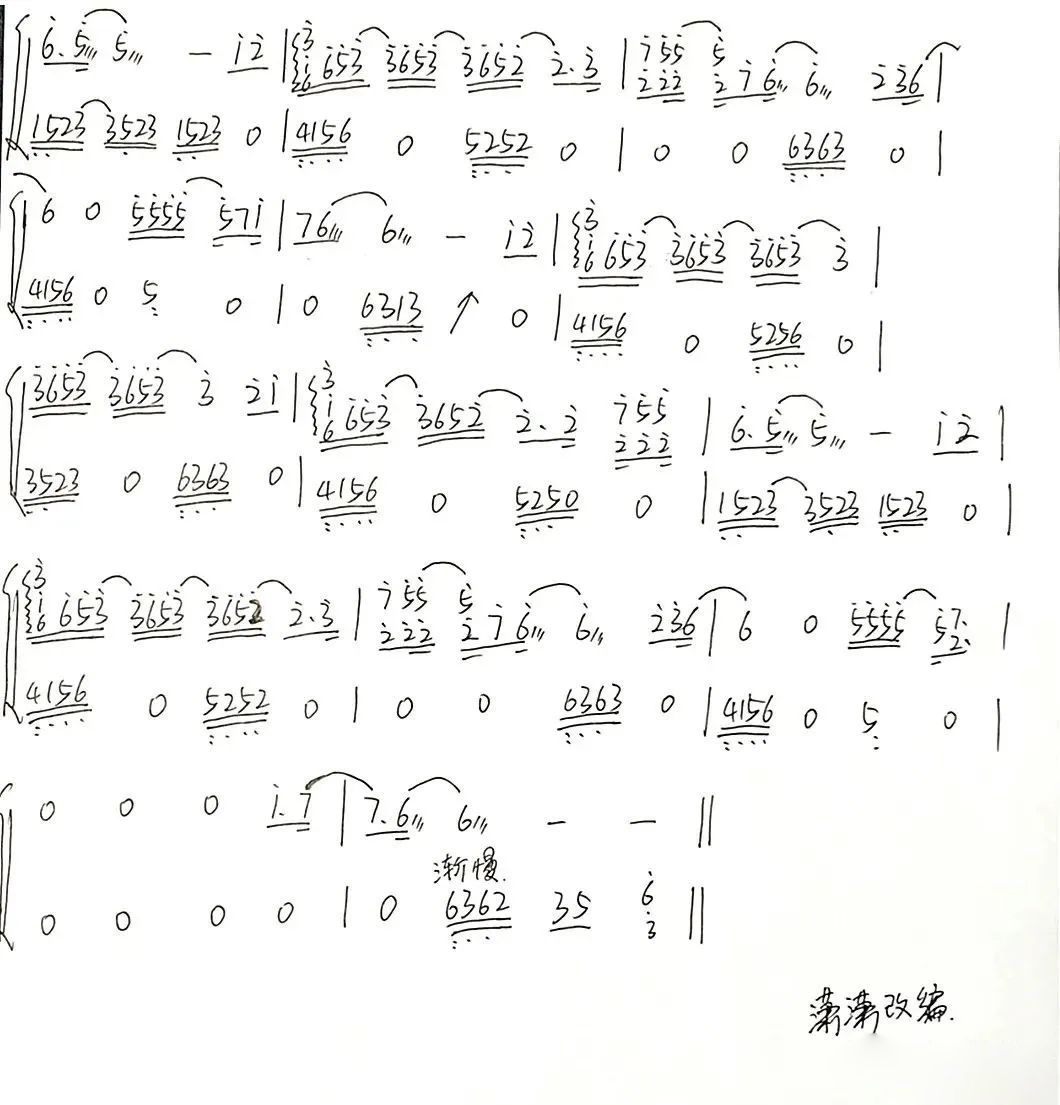 6.5 5 — 12 | 3 1 6 653 3653 3652 2.3 | 755 5 222 276 6 236 |
1523 3523 1523 0 | 4156 0 5252 0 | 0 0 6363 0 |
6 0 5555 571 | 76 6 — 12 | 3 1 6 653 3653 3653 3 |
4156 0 5 0 | 0 6313 ↑ 0 | 4156 0 5256 0 |
3653 3653 3 21 | 3 1 6 653 3652 2.2 755 222 | 6.5 5 — 12 |
3523 0 6363 0 | 4156 0 5250 0 | 1523 3523 1523 0 |
3 1 6 653 3653 3652 2.3 | 755 5 222 276 6 236 | 6 0 5555 57. 2. |
4156 0 5252 0 | 0 0 6363 0 | 4156 0 5 0 |
0 0 0 1.7 | 7.6 6 — — ||
渐慢.
0 0 0 0 | 0 6362 35 6 3 ||
潇潇改编.